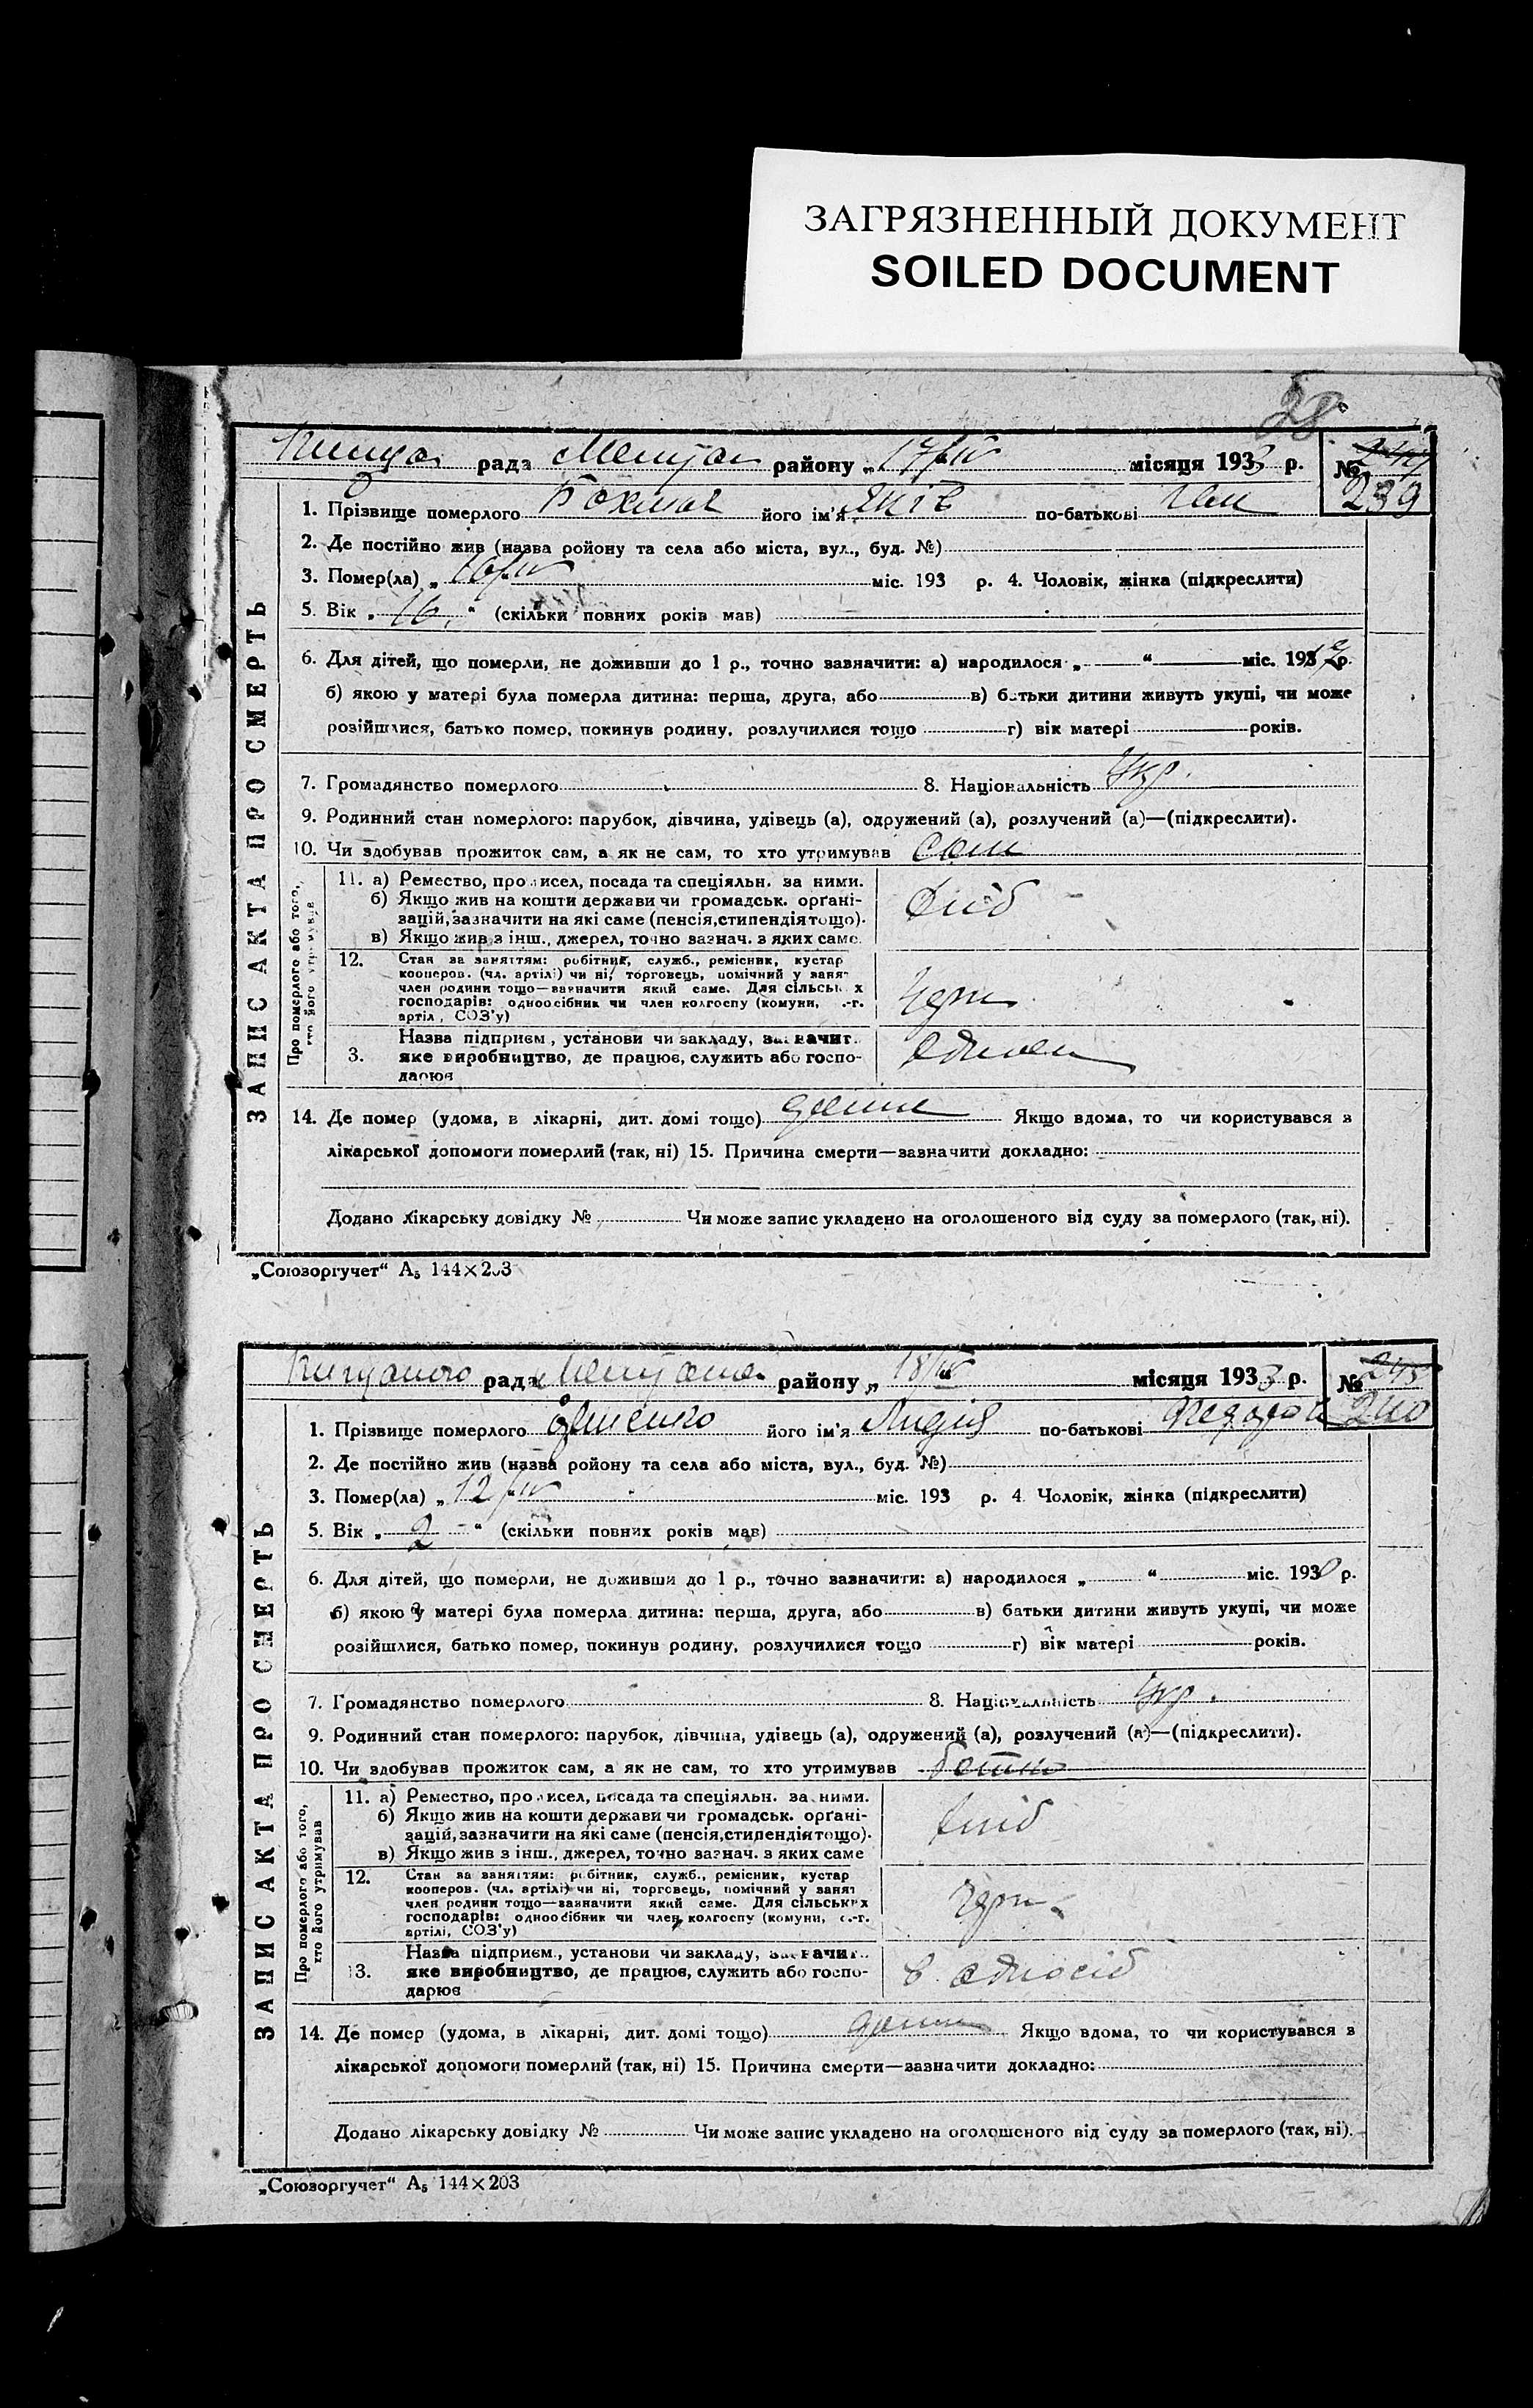 ЗАГРЯЗНЕННЫЙ ДОКУМЕНТ
SOILED DOCUMENT
28
рада района „17/IV місяця 1933 р. №
239
1. Прізвище померлого його ім'я Яків по-батькові
2. Де постійно жив (назва ройону та села або міста, вул., буд. №)
3. Помер(ла) „16/IV міс. 193 р. 4. Чоловік, жінка (підкреслити)
5. Вік „16 “ (скільки повних років мав)
6. Для дітей, що померли, не доживши до 1 р., точно зазначити: а) народилося „ “ міс. 1917 р.
б) якою у матері була померла дитина: перша, друга, або в) батьки дитини живуть укупі, чи може
розійшлися, батько помер, покинув родину, розлучилися тощо г) вік матері років.
7. Громадянство померлого 8. Національність Укр.
9. Родинний стан померлого: парубок, дівчина, удівець (а), одружений (а), розлучений (а)—(підкреслити).
10. Чи здобував прожиток сам, а як не сам, то хто утримував Сам
ЗАПИС АКТА ПРО СМЕРТЬ
Про померлого або того, хто його утримував
11. а) Ремество, промисел, посада та спеціяльн. за ними.
б) Якщо жив на кошти держави чи громадськ. орґані-
зацій, зазначити на які саме (пенсія, стипендія тощо).
в) Якщо жив з інш., джерел, точно зазнач. з яких саме.
хліб
12. Стан за заняттям: робітник, служб., ремісник, кустар
кооперов. (чл. артілі) чи ні, торговець, помічний у занят
член родини тощо—зазначити який саме. Для сільськ х
господарів: одноосібник чи член колгоспу (комуни, с.-г.
артіл, СОЗ'у)
3. Назва підприєм., установи чи закладу, зазначит.
яке виробництво, де працює, служить або госпо-
дарює
14. Де помер (удома, в лікарні, дит. домі тощо) дома Якщо вдома, то чи користувався з
лікарської допомоги померлий (так, ні) 15. Причина смерти—зазначити докладно:
Додано лікарську довідку № Чи може запис укладено на оголошеного від суду за померлого (так, ні).
„Союзоргучет“ А₅ 144×203
рада району „18/IV місяця 1933 р. №
240
1. Прізвище померлого його ім'я Лидія по-батькові
2. Де постійно жив (назва ройону та села або міста, вул., буд. №)
3. Помер(ла) „12/IV міс. 193 р. 4. Чоловік, жінка (підкреслити)
5. Вік „2 “ (скільки повних років мав)
6. Для дітей, що померли, не доживши до 1 р., точно зазначити: а) народилося „ “ міс. 1930 р.
б) якою у матері була померла дитина: перша, друга, або в) батьки дитини живуть укупі, чи може
розійшлися, батько помер, покинув родину, розлучилися тощо г) вік матері років.
7. Громадянство померлого 8. Національність Укр.
9. Родинний стан померлого: парубок, дівчина, удівець (а), одружений (а), розлучений (а)—(підкреслити).
10. Чи здобував прожиток сам, а як не сам, то хто утримував батько
ЗАПИС АКТА ПРО СМЕРТЬ
Про померлого або того, хто його утримував
11. а) Ремество, промисел, посада та спеціяльн. за ними.
б) Якщо жив на кошти держави чи громадськ. орґані-
зацій, зазначити на які саме (пенсія, стипендія тощо).
в) Якщо жив з інш., джерел, точно зазнач. з яких саме
хліб
12. Стан за заняттям: робітник, служб., ремісник, кустар
кооперов. (чл. артілі) чи ні, торговець, помічний у занят
член родини тощо—зазначити який саме. Для сільських
господарів: одноосібник чи член колгоспу (комуни, с.-г.
артілі, СОЗ'у)
13. Назва підприєм., установи чи закладу, зазначит.
яке виробництво, де працює, служить або госпо-
дарює
в односіб
14. Де помер (удома, в лікарні, дит. домі тощо) дома Якщо вдома, то чи користувався з
лікарської допомоги померлий (так, ні) 15. Причина смерти—зазначити докладно:
Додано лікарську довідку № Чи може запис укладено на оголошеного від суду за померлого (так, ні).
„Союзоргучет“ А₅ 144×203